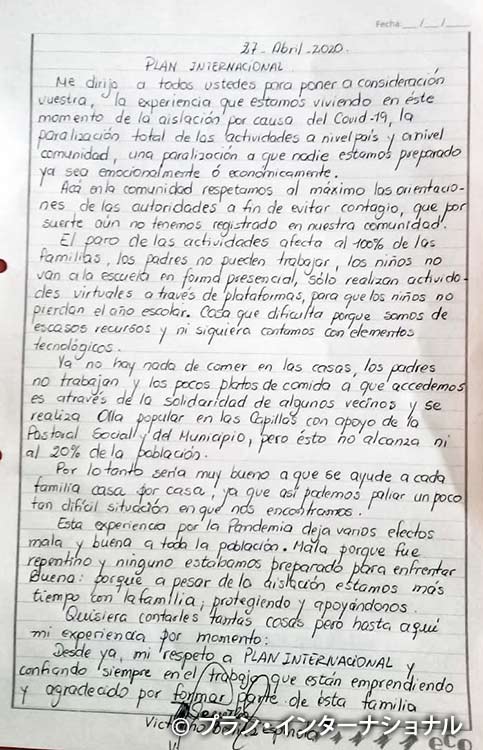 Fecha: __/__/__
27 - Abril - 2020.
PLAN INTERNACIONAL
Me dirijo a todos ustedes para poner a consideración
vuestra, la experiencia que estamos viviendo en éste
momento de la aislación por causa del Covid-19, la
paralización total de las actividades a nivel país y a nivel
comunidad, una paralización a que nadie estamos preparado
ya sea emocionalmente ó económicamente.
Acá en la comunidad respetamos al máximo las orientacio-
nes de las autoridades a fin de evitar contagio, que por
suerte aún no tenemos registrado en nuestra comunidad.
El paro de las actividades afecta al 100% de las
familias, los padres no pueden trabajar, los niños no
van a la escuela en forma presencial, sólo realizan activida-
des virtuales a través de plataformas, para que los niños no
pierdan el año escolar. Cosa que dificulta porque somos de
escasos recursos y ni siquiera contamos con elementos
tecnológicos.
Ya no hay nada de comer en las casas, los padres
no trabajan y los pocos platos de comida a que accedemos
es através de la solidaridad de algunos vecinos y se
realiza Olla popular en las Capillas con apoyo de la
Pastoral Social y del Municipio, pero ésto no alcanza ni
al 20% de la población.
Por lo tanto sería muy bueno a que se ayude a cada
familia casa por casa, ya que así podemos paliar un poco
tan difícil situación en que nos encontramos.
Esta experiencia por la Pandemia deja varios efectos
mala y buena a toda la población. Mala porque fue
repentino y ninguno estabamos preparado para enfrentar
Buena: porque a pesar de la aislación estamos más
tiempo con la familia, protegiendo y apoyándonos.
Quisiera contarles tantas cosas pero hasta aquí
mi experiencia por momento:
Desde ya, mi respeto a PLAN INTERNACIONAL y
confiando siempre en el trabajo que están emprendiendo
y agradecido por formar parte de ésta familia
© プラン・インターナショナル